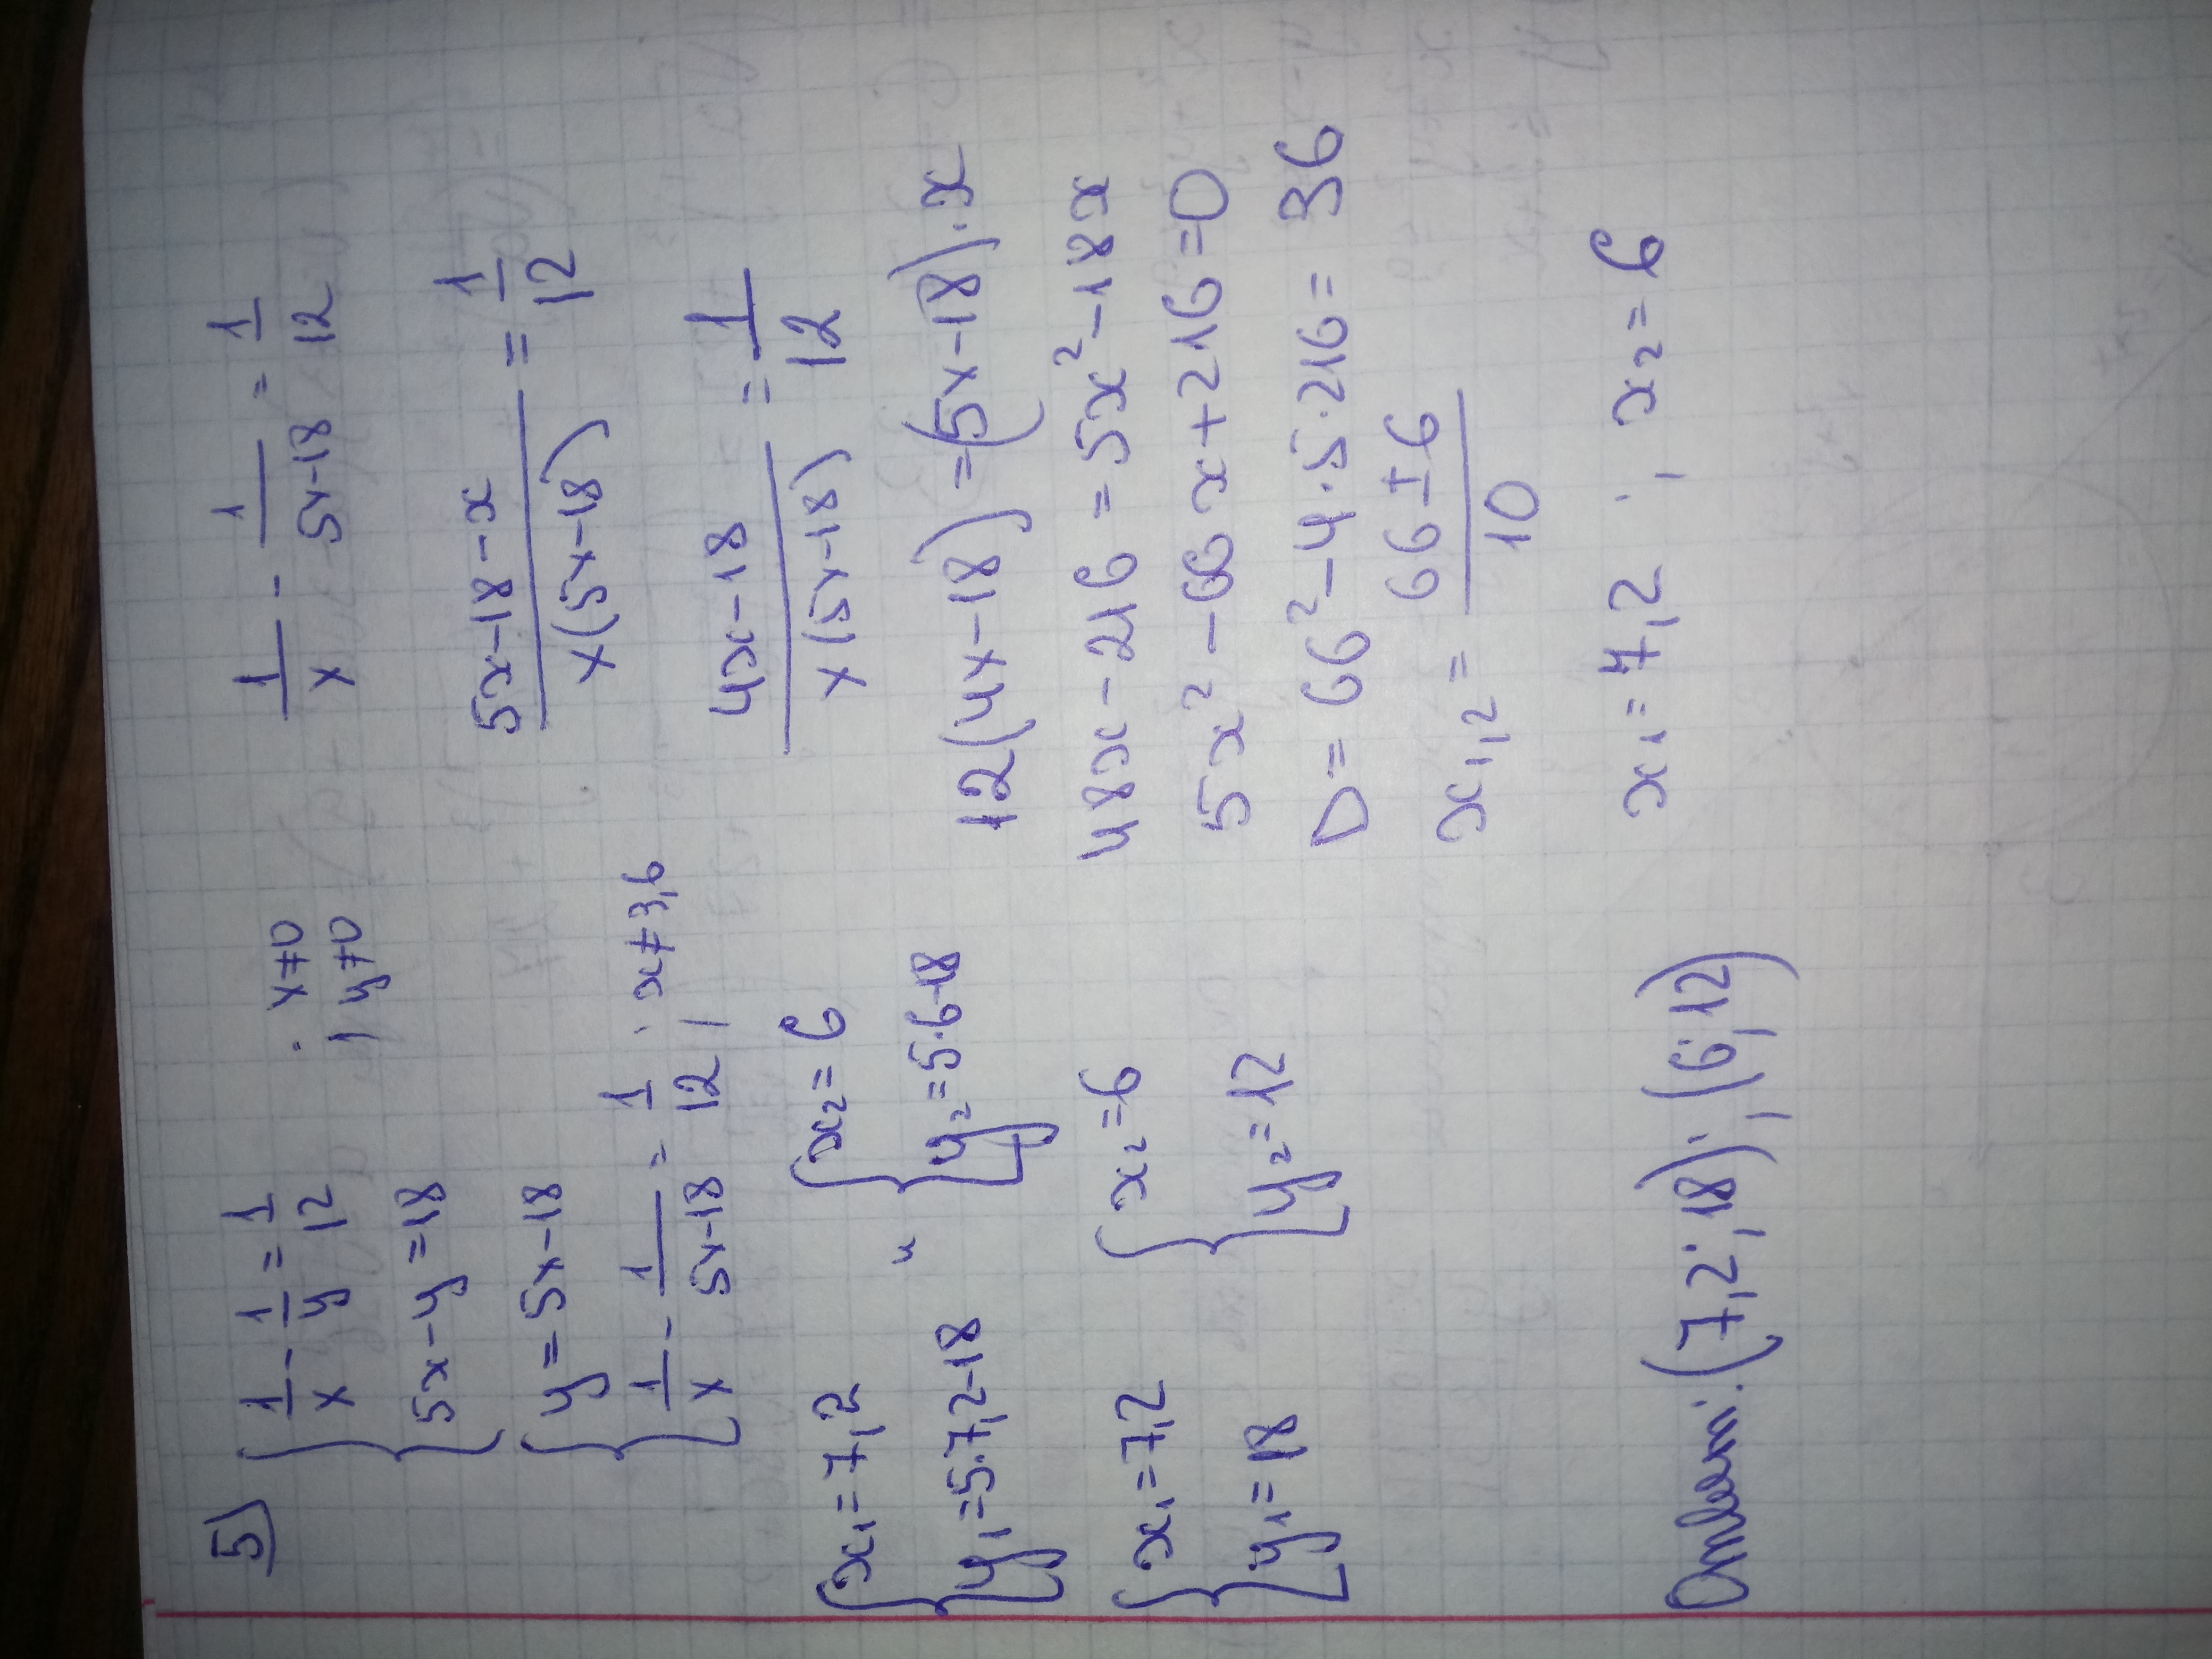 5) { 1/x - 1/y = 1/12 ; x≠0
{ 5x-y=18 ; y≠0
{ y=5x-18
{ 1/x - 1/(5x-18) = 1/12 ; x≠3,6
{ x₁=7,2
{ y₁=5·7,2-18
и
{ x₂=6
{ y₂=5·6-18
{ x₁=7,2
{ y₁=18
{ x₂=6
{ y₂=12
1/x - 1/(5x-18) = 1/12
(5x-18-x)/(x(5x-18)) = 1/12
(4x-18)/(x(5x-18)) = 1/12
12(4x-18)=(5x-18)·x
48x-216=5x²-18x
5x²-66x+216=0
D=66²-4·5·216=36
x₁,₂= (66±6)/10
x₁=7,2 ; x₂=6
Ответ: (7,2;18);(6;12)